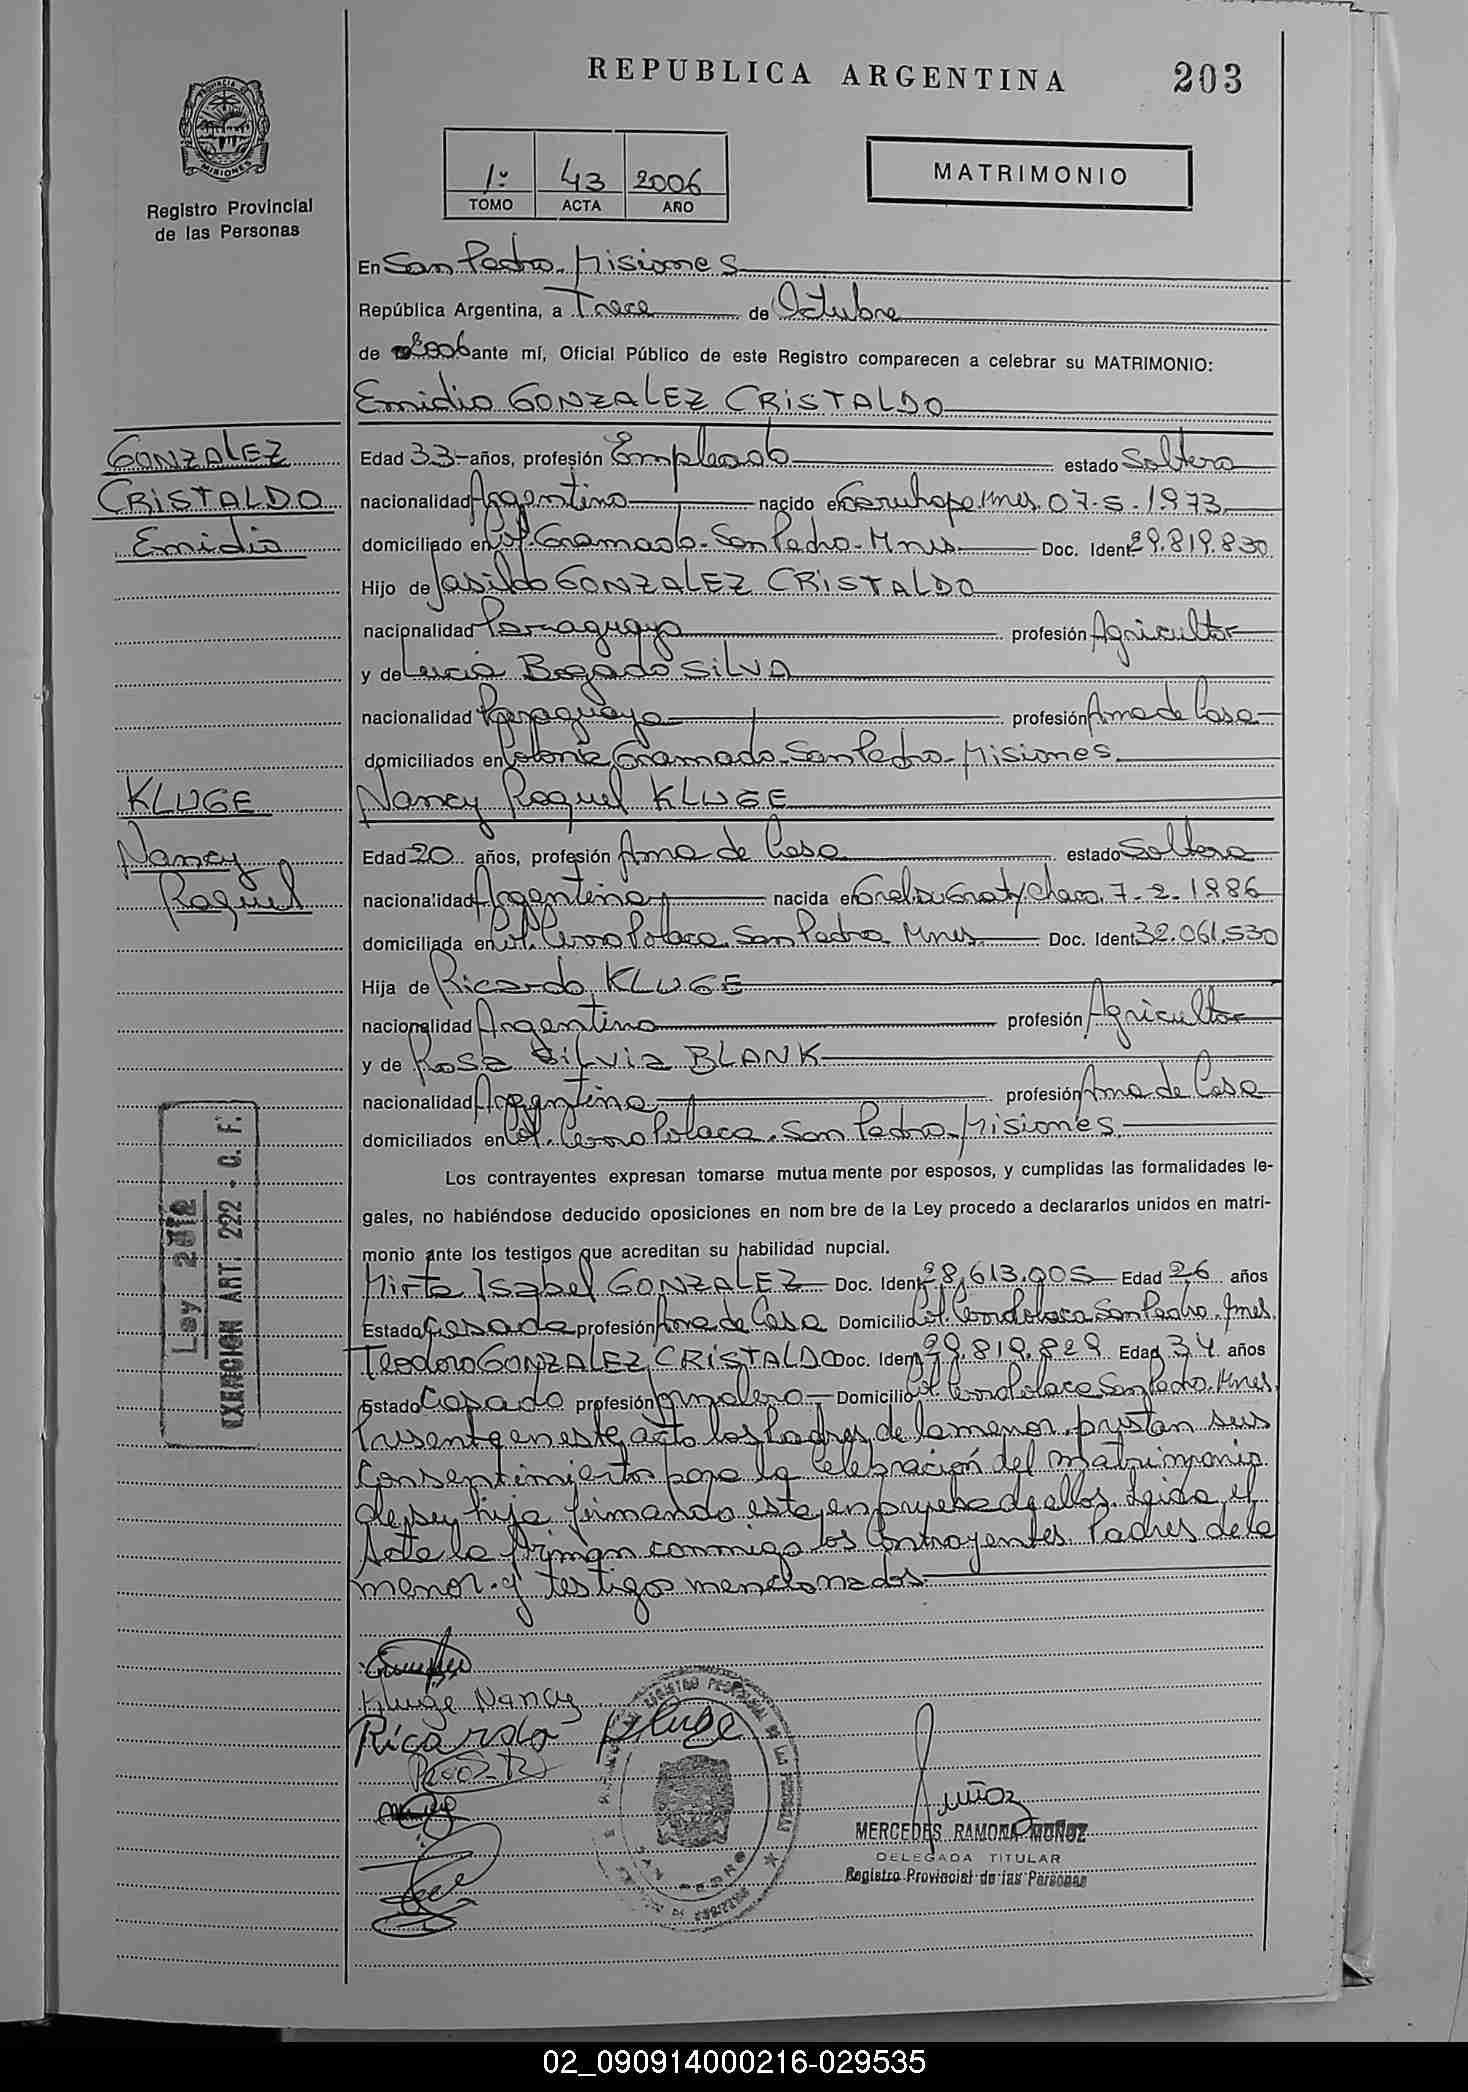 REPUBLICA ARGENTINA 203
PROVINCIA DE MISIONES
Registro Provincial
de las Personas
1º 43 2006
TOMO ACTA AÑO
MATRIMONIO
En San Pedro - Misiones
República Argentina, a Trece de Octubre
de 2006 ante mí, Oficial Público de este Registro comparecen a celebrar su MATRIMONIO:
Emidio GONZALEZ CRISTALDO
GONZALEZ
CRISTALDO
Emidio
Edad 33- años, profesión Empleado estado Soltero
nacionalidad Argentino nacido en Garuhape. Mnes. 07-5-1.973
domiciliado en Col. Gramado - San Pedro - Mnes Doc. Ident 29.819.830
Hijo de GONZALEZ CRISTALDO
nacionalidad Paraguayo profesión Agricultor
y de Lucia Bogado SILVA
nacionalidad Paraguaya profesión Ama de Casa
domiciliados en Colonia Gramado - San Pedro - Misiones
KLUGE
Nancy
Raquel
Nancy Raquel KLUGE
Edad 20 años, profesión Ama de Casa estado Soltera
nacionalidad Argentina nacida en Chaco. 7-2-1986
domiciliada en Col. Cerro Polaca. San Pedro Mnes. Doc. Ident 32.061.530
Hija de Ricardo KLUGE
nacionalidad Argentino profesión Agricultor
y de Rosa Silvia BLANK
nacionalidad Argentina profesión Ama de Casa
domiciliados en Col. Cerro Polaca. San Pedro - Misiones
Los contrayentes expresan tomarse mutua mente por esposos, y cumplidas las formalidades le-
gales, no habiéndose deducido oposiciones en nom bre de la Ley procedo a declararlos unidos en matri-
monio ante los testigos que acreditan su habilidad nupcial.
Mirta Isabel GONZALEZ Doc. Ident 28.613.005 Edad 26 años
Estado Casada profesión Ama de Casa Domicilio Col. Cerro Polaca San Pedro. Mnes.
Teodoro GONZALEZ CRISTALDO Doc. Ident 29.819.829 Edad 34 años
Estado Casado profesión Domicilio Col. Cerro Polaca San Pedro. Mnes.
Presente en este acto los Padres de la menor, prestan sus
Consentimientos para la Celebración del Matrimonio
de su hija firmando este en prueba de ellos. Leida el
Acta la firman conmigo los Contrayentes Padres de la
menor y testigos mencionados
Ley 2812
EXENCION ART. 222 - C. F.
Kluge Nancy
Ricardo Kluge
Muñoz
MERCEDES RAMONA MUÑOZ
DELEGADA TITULAR
Registro Provincial de las Personas
REGISTRO PROVINCIAL DE LAS PERSONAS
SAN PEDRO
02_090914000216-029535